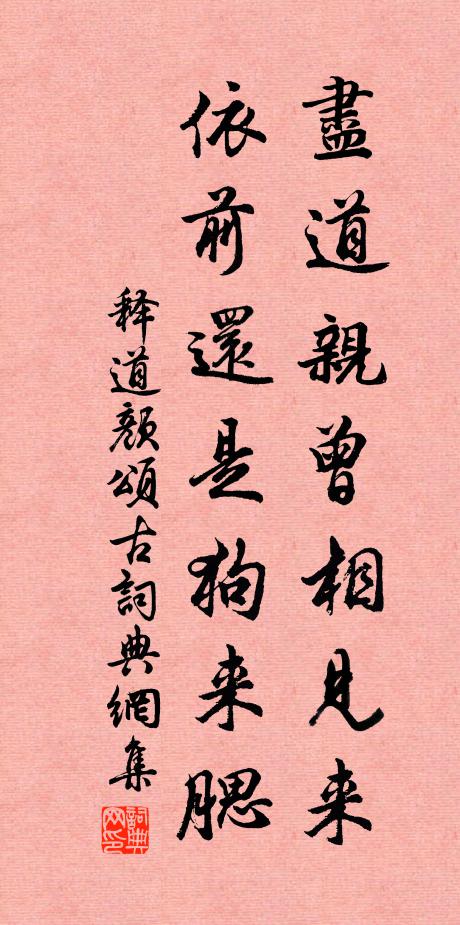 盡道親曾相見来
依前還是狗来腮
释道颜頌古詞典網集
詞典网印